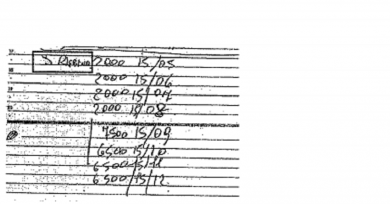 2000 15/05
2000 15/06
2000 15/07
2000 15/08
7500 15/09
6500 15/10
6500 15/11
6 500 15/12